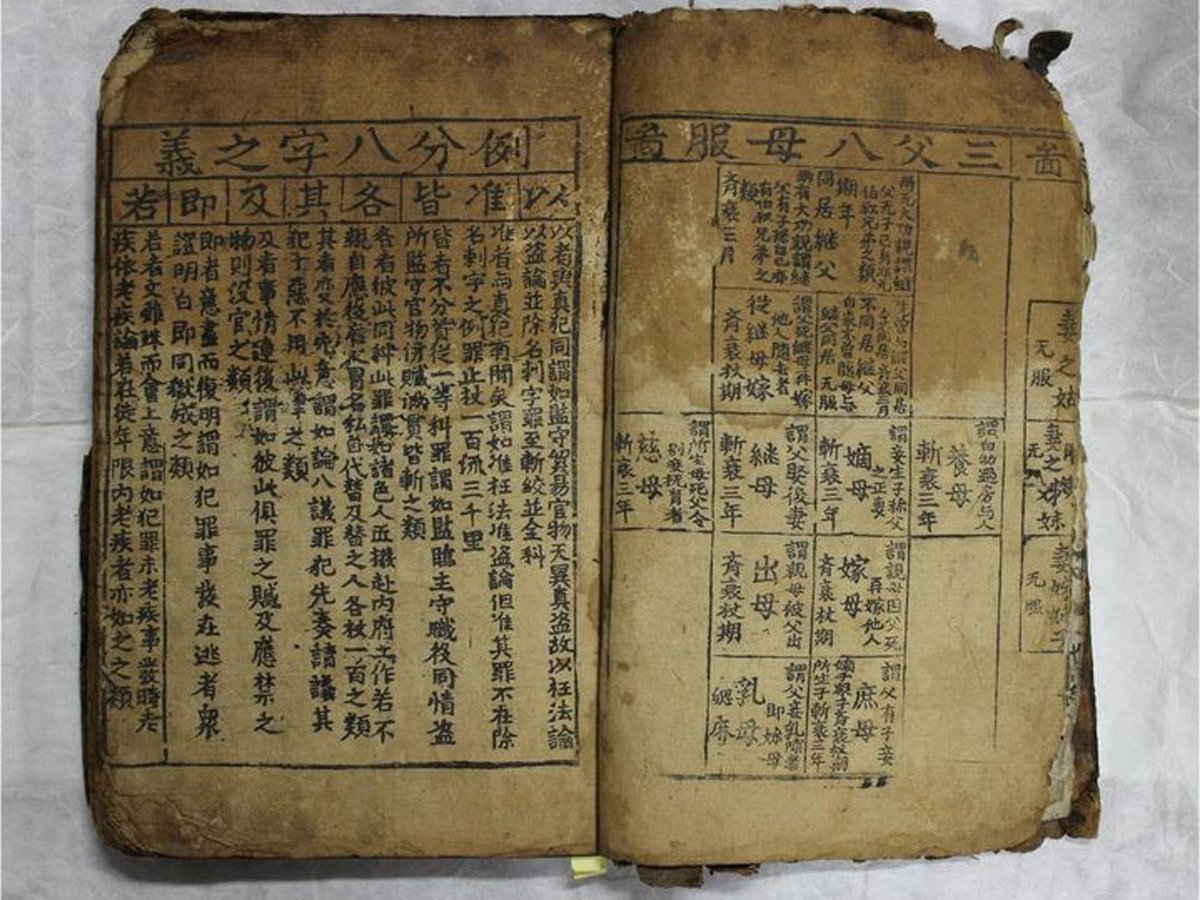 啚
三父八母服啚
妻之姑
无服
同居継父
齊衰三月
不同居継父
継父同居 无服
謂父死継母再嫁
他人隨去者
從継母嫁
齊衰杖期
謂自幼過房与人
養母
斬衰三年
謂妾生子稱父
之正妻
嫡母
斬衰三年
謂父娶後妻
継母
斬衰三年
謂所生母死父令
别妾撫育者
慈母
斬衰三年
謂親母因父死
再嫁他人
嫁母
齊衰杖期
謂親母被父出
出母
齊衰杖期
謂父有子妾
庶母
所生子斬衰三年
謂父妾乳哺者
即妳母
乳母
緦麻
例分八字之義
以
准
皆
各
其
及
即
若
以者與真犯同謂如監守貿易官物无異真盗故以枉法論
以盗論並除名刺字罪至斬絞並全科
准者与真犯有間矣謂如准枉法准盗論但准其罪不在除
名刺字之例罪止杖一百流三千里
皆者不分首從一等科罪謂如監臨主守職役同情盗
所監守官物併贓滿貫皆斬之類
各者彼此同科此罪謂如諸色人匠撥赴内府工作若不
親自應役雇人冒名私自代替及替之人各杖一百之類
其者变於先意謂如論八議罪犯先奏請議其
犯十惡不用此律之類
及者事情連後謂如彼此俱罪之贓及應禁之
物則没官之類
即者意盡而復明謂如犯罪事發在逃者衆
證明白即同獄成之類
若者文雖殊而會上意謂如犯罪未老疾事發時老
疾依老疾論若在徒年限内老疾者亦如之之類